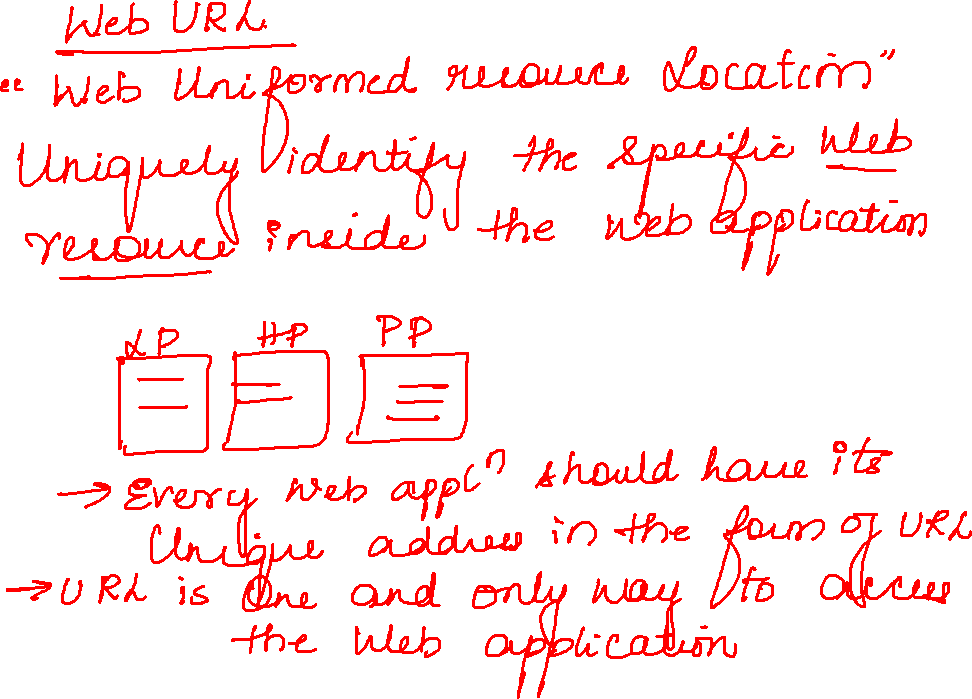 Web URL
"Web Uniformed resource Location"
Uniquely identify the specific Web
resource inside the web application
LP HP PP
→ Every web appl^n should have its
Unique address in the form of URL
→ URL is One and only way to access
the Web application